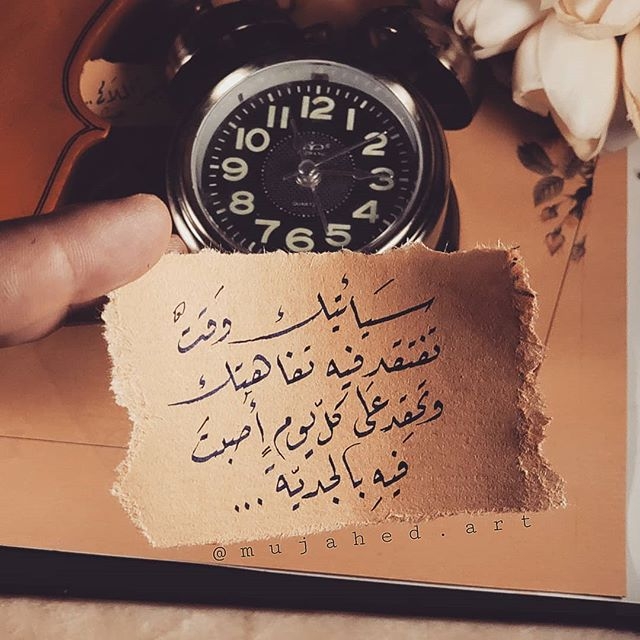 12
1
2
3
4
5
6
7
8
9
10
11
QUARTZ
سَيأتيك وَقتٌ
تَفتقد فيه تفاهتك
وتَحقِد عَلى كلّ يومٍ أُصبتَ
فيهِ بالجديّة ...
@mujahed.art